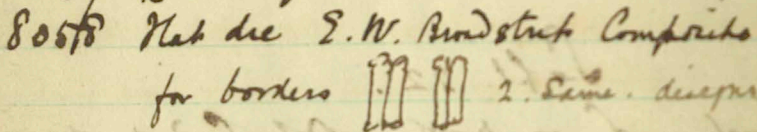 8058 Flat die E.W. Broadstrip Composite
for borders 2. Same. designs